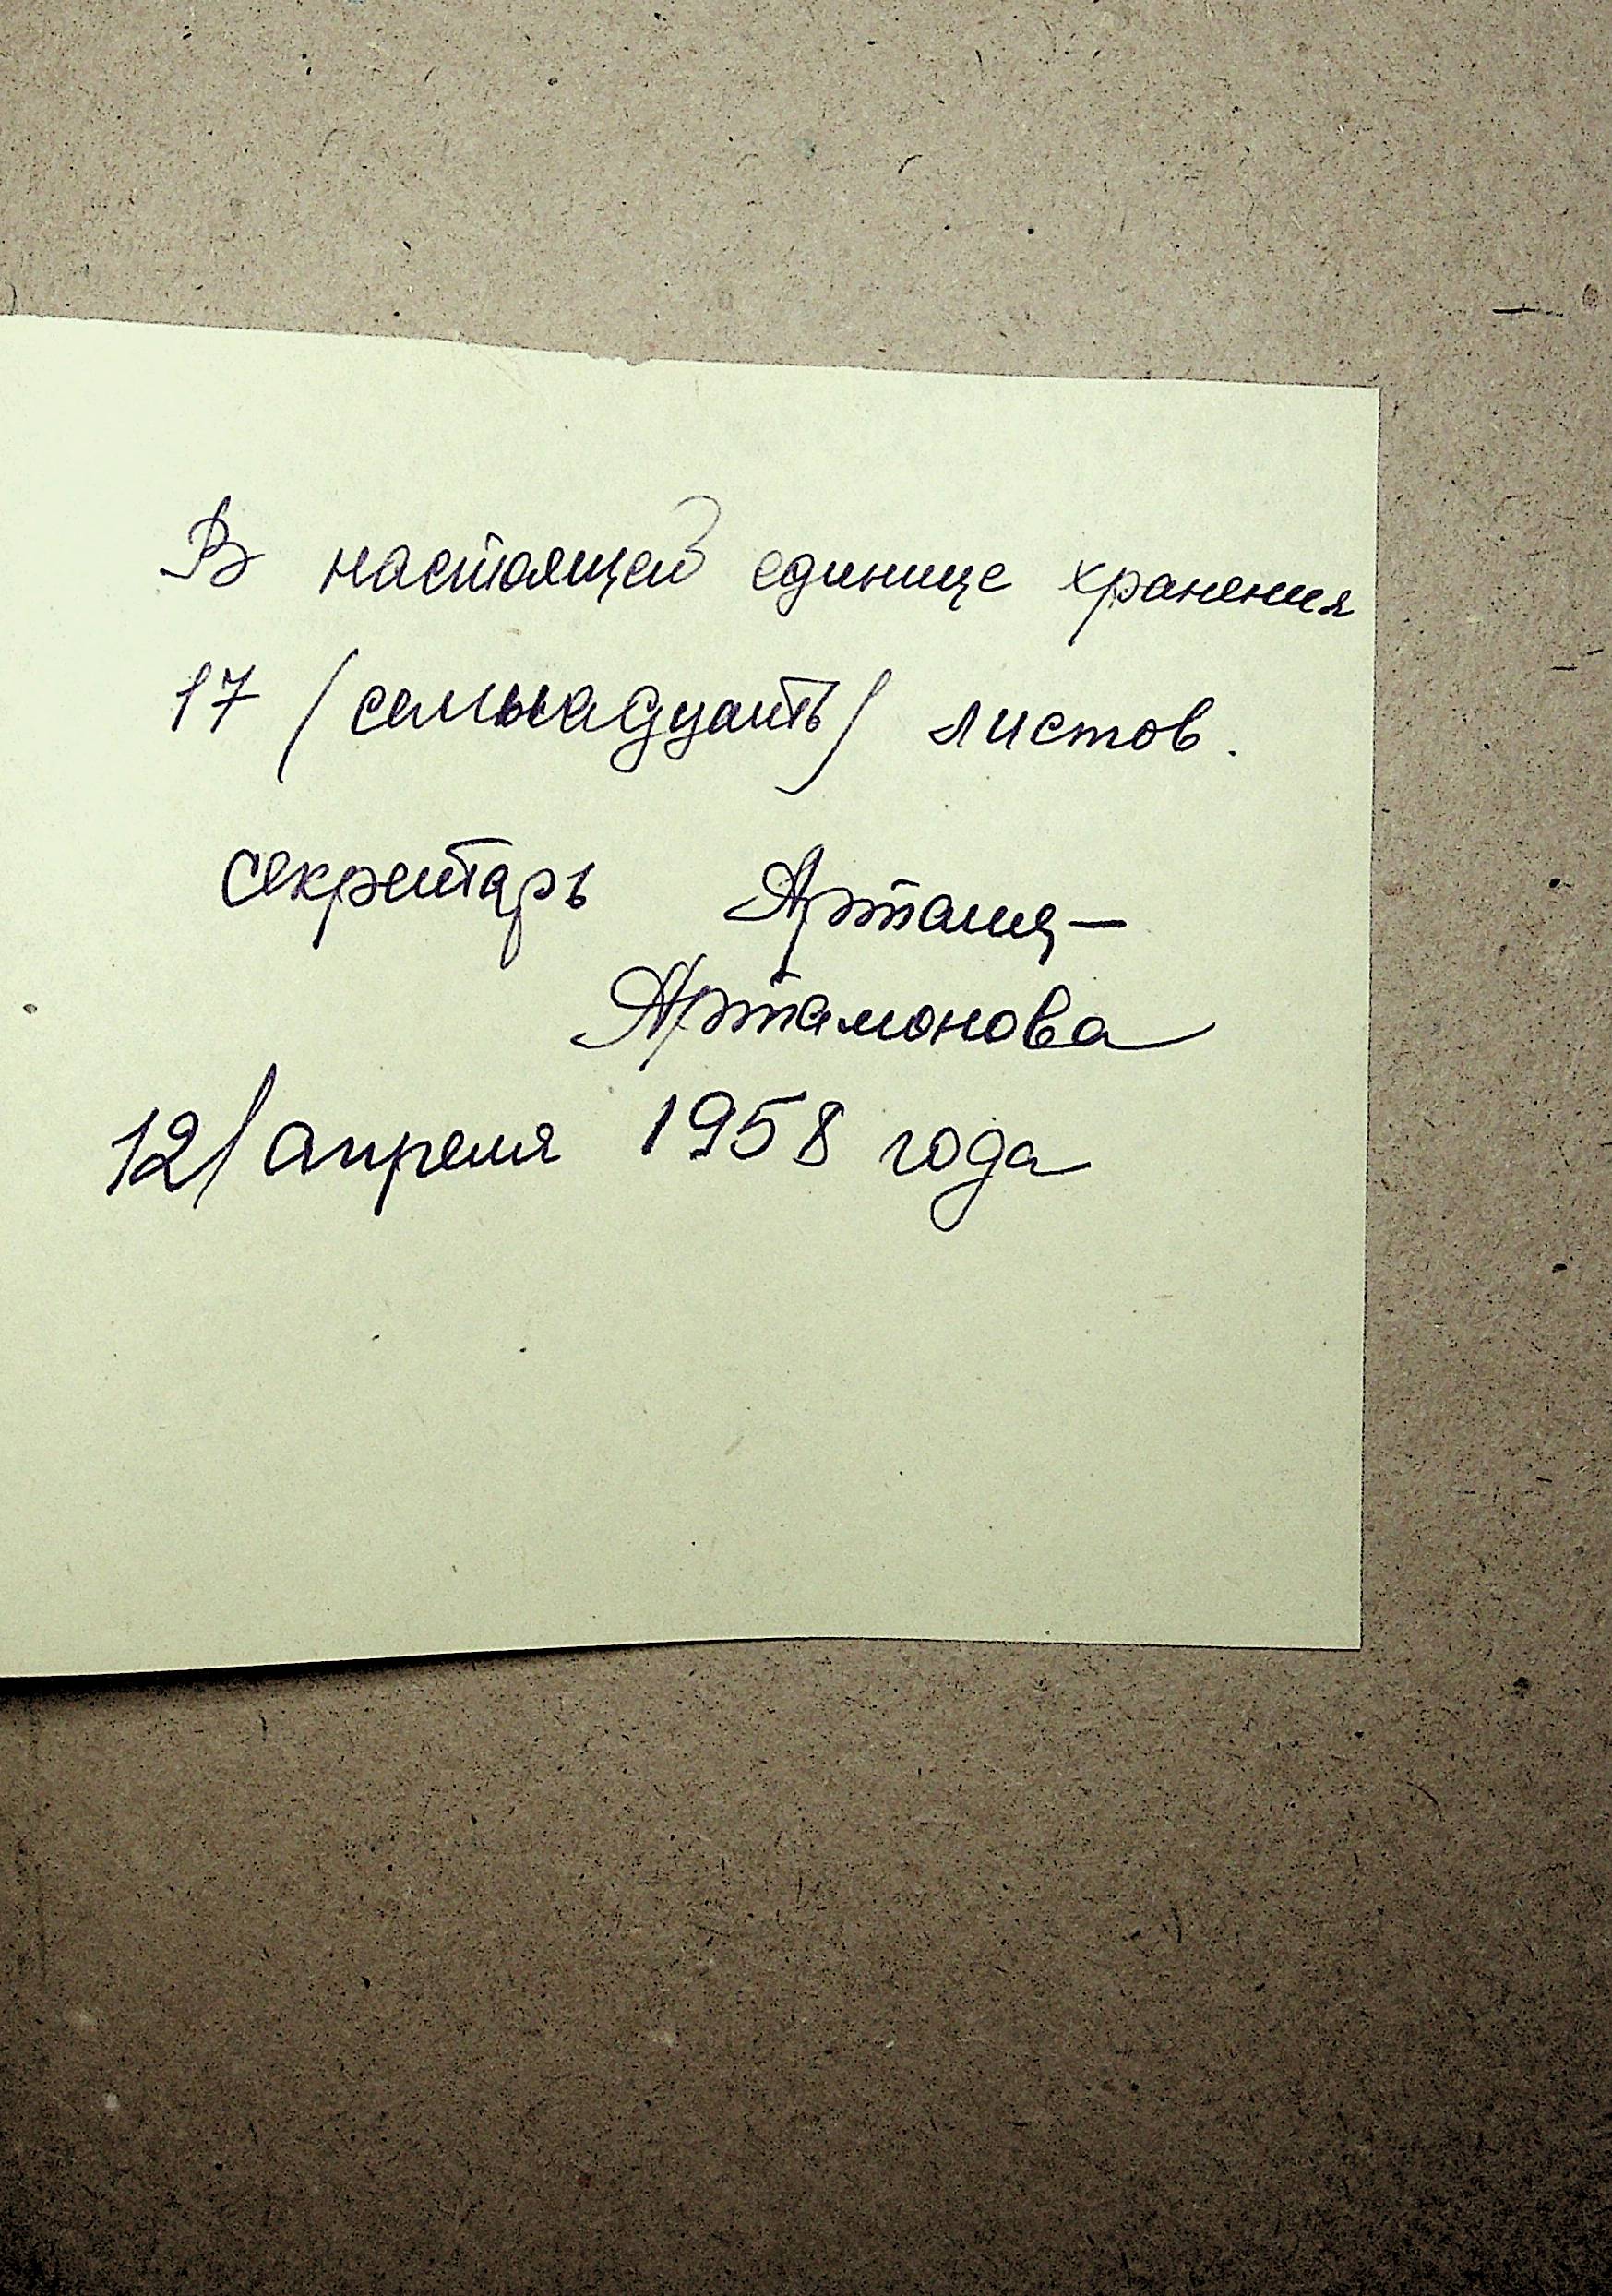 В настоящей единице хранения
17 /семнадцать/ листов.
секретарь
Артамонова
12/апреля 1958 года